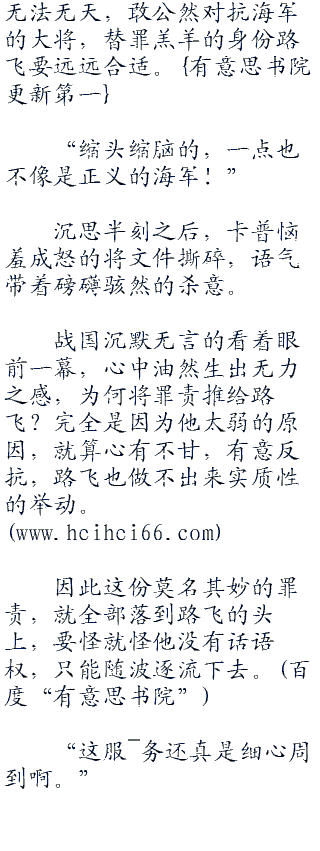 无法无天，敢公然对抗海军
的大将，替罪羔羊的身份路
飞要远远合适。{有意思书院
更新第一}
“缩头缩脑的，一点也
不像是正义的海军！”
沉思半刻之后，卡普恼
羞成怒的将文件撕碎，语气
带着磅礴骇然的杀意。
战国沉默无言的看着眼
前一幕，心中油然生出无力
之感，为何将罪责推给路
飞？完全是因为他太弱的原
因，就算心有不甘，有意反
抗，路飞也做不出来实质性
的举动。
(www.hcihci66.com)
因此这份莫名其妙的罪
责，就全部落到路飞的头
上，要怪就怪他没有话语
权，只能随波逐流下去。(百
度“有意思书院”)
“这服¯务还真是细心周
到啊。”